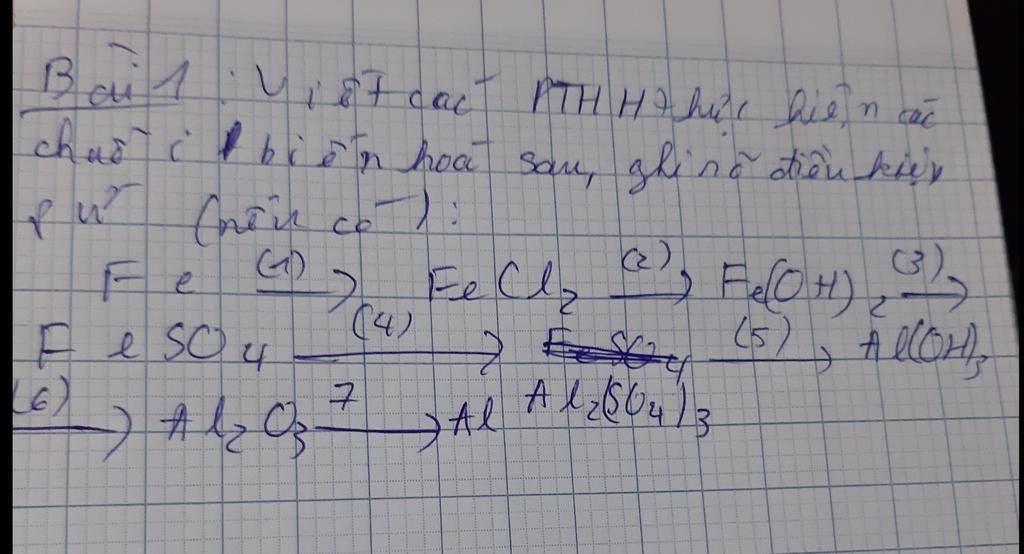 Bài 1 : Viết các PTHH thực hiện các
chuỗi biến hoá sau, ghi rõ điều kiện
pư (nếu có) :
Fe (1)→ FeCl2 (2)→ Fe(OH)2 (3)→
FeSO4 (4)→ FeSO4 (5)→ Al(OH)3
(6)→ Al2O3 7→ Al Al2(SO4)3